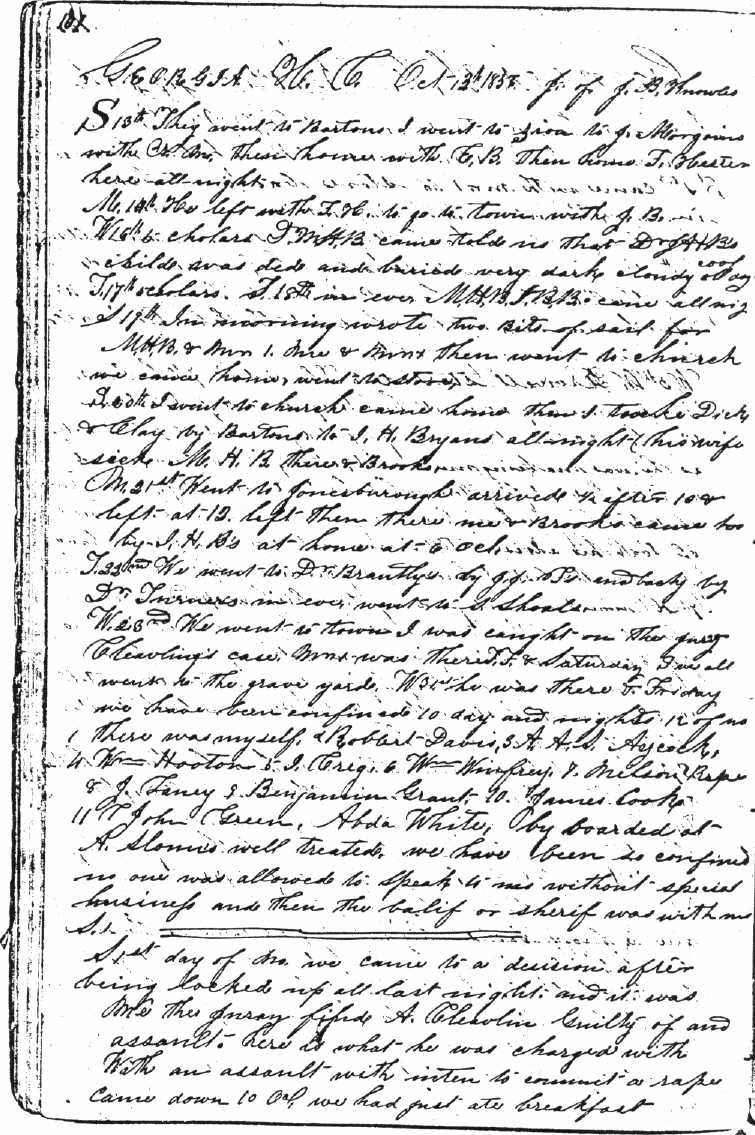 GEORGIA H. C. Oct 13th 1858 J. of J. B. Knowles
S 13th They went to Bartons I went to Zion to J. Morgains
with Ch. M. these homes with C. B. then home T. Hester
here all night
M. 14th He left with T. H. to go to town with J. B.
W 16th 6 cholars J. M. H. B came tolde us that Dr J. H. B's
childe was dede and buried very dark cloudy cool day
T. 17th scholars. F. 18th in ever M.H.B. J.B.B. came all nig
S 19th In morning wrote two Bits of sail for
M.H.B. & Mrs 1. Me & Mrs then went to church
we came home, went to store
S. 20th I went to church came home then I tooke Dick
& Clay by Bartons to J. H. Bryans all night (his wife
sick M. H. B there & Brooks
M. 21st Went to Jonesborough arrived ½ after 10 &
left at 12. left then there me & Brooks came to
by J. H. B's at home at 6 Ocl.
T. 22nd We went to Dr Brantlys by J.J. and back by
Dr Turners in ever went to S Shoals
W. 23rd We went to town I was caught on the jury
Cleavling's case was there T. F. & Saturday I we all
went to the grave yard. W 31st he was there & Friday
we have been confined 10 day and nights 12 of us
1 there was myself, 2 Robbert Davis, 3 A. A. S. Aycock,
4 Wm Hooton 5 J. Creg. 6 Wm Winfrey, 7. Nelson
8 J. Finey 9 Benjamin Grant. 10. James Cook,
11 John Green, Abda White, by boarded at
A. Slomies well treated, we have been so confined
no one was allowed to speak to us without special
business and then the balif or sherif was with us
S. 1.
S 1st day of No. we came to a decision after
being locked up all last night. and it was
We the Juray finde A. Cleavlin Guilty of and
assault. here is what he was charged with
With an assault with inten to commit a rape
came down 10 Ocl, we had just ate breakfast